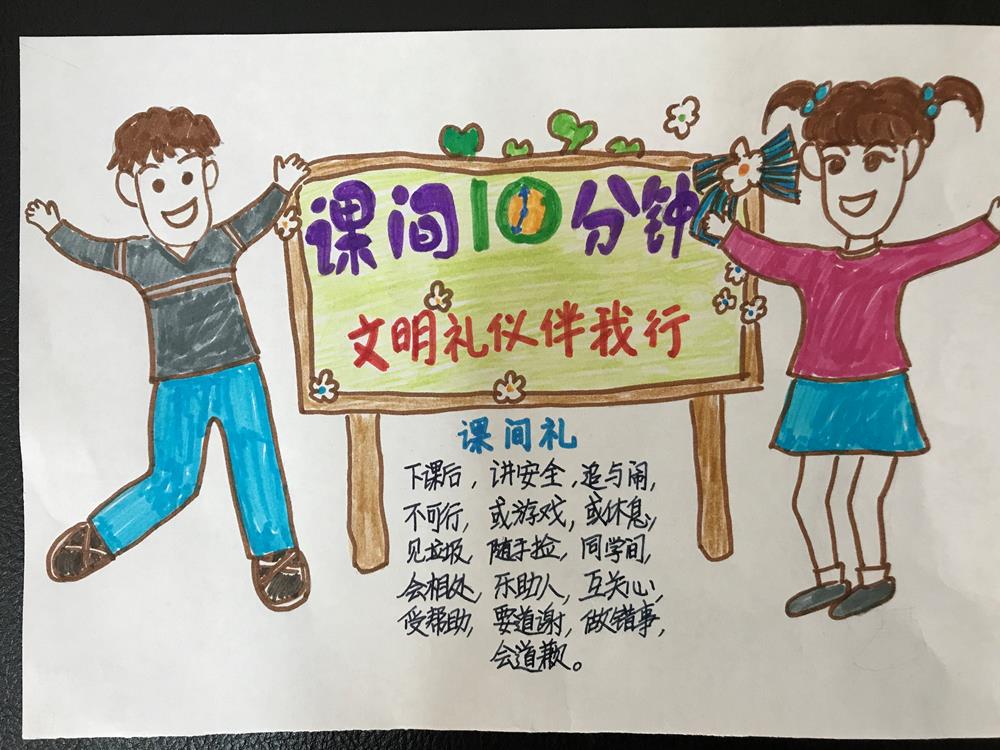 课间10分钟
文明礼仪伴我行
课间礼
下课后，讲安全，追与闹，
不可行，或游戏，或休息，
见垃圾，随手捡，同学间，
会相处，乐助人，互关心，
受帮助，要道谢，做错事，
会道歉。